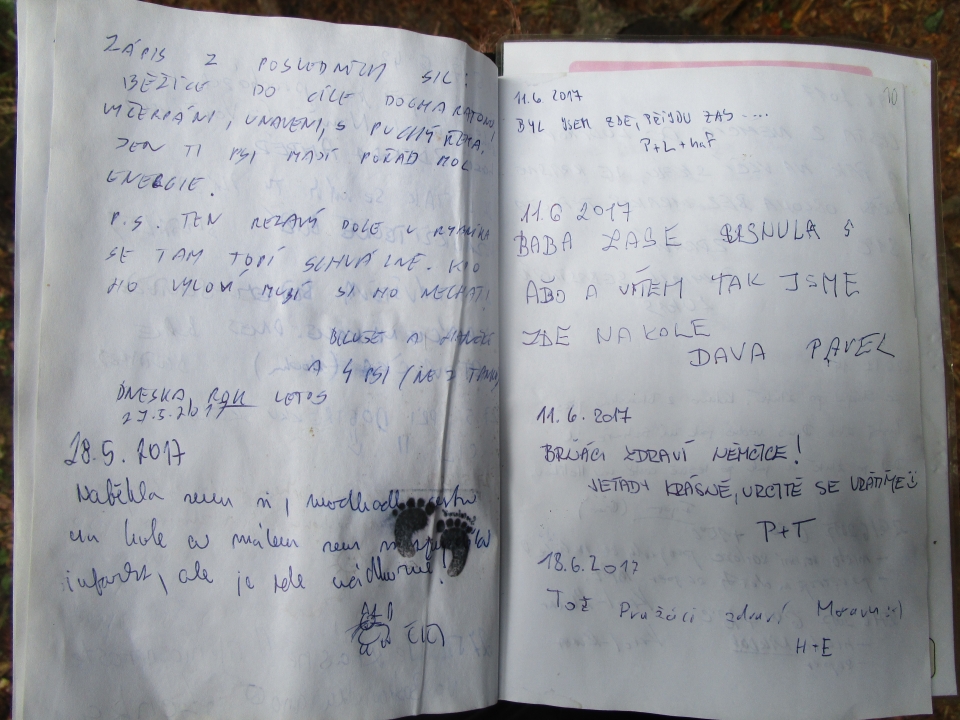 ZÁPIS Z POSLEDNÍCH SIL:
BĚŽÍCE DO CÍLE DOGMARATONU,
VYČERPÁNI, UNAVENI, S PUCHÝŘEMA.
JEN TI PSI MAJÍ POŘÁD MOC
ENERGIE.
P.S. TEN REZAVÝ DOLE U RYBNÍKA
SE TAM TOPÍ SCHVÁLNĚ. KDO
HO VYLOVÍ MUSÍ SI HO NECHAT!
A 4 PSI (NEJ
DNESKA, ROK LETOS
27.5.2017
28.5. 2017
Naběhla sem si,
na kole a málem sem
infarkt, ale je zde nádherně!
11.6. 2017
BYL JSEM ZDE, PŘIJDU ZAS ....
P+L+haf
10
11.6 2017
BABA ZASE S
A TAK JSME
ZDE NA KOLE
DAVA PAVEL
11.6.2017
BRŇÁCI ZDRAVÍ NĚMČICE!
JE TADY KRÁSNĚ, URČITĚ SE VRÁTÍME :)
P+T
18.6.2017
Tož Pražáci zdraví Moravu :)
H+E